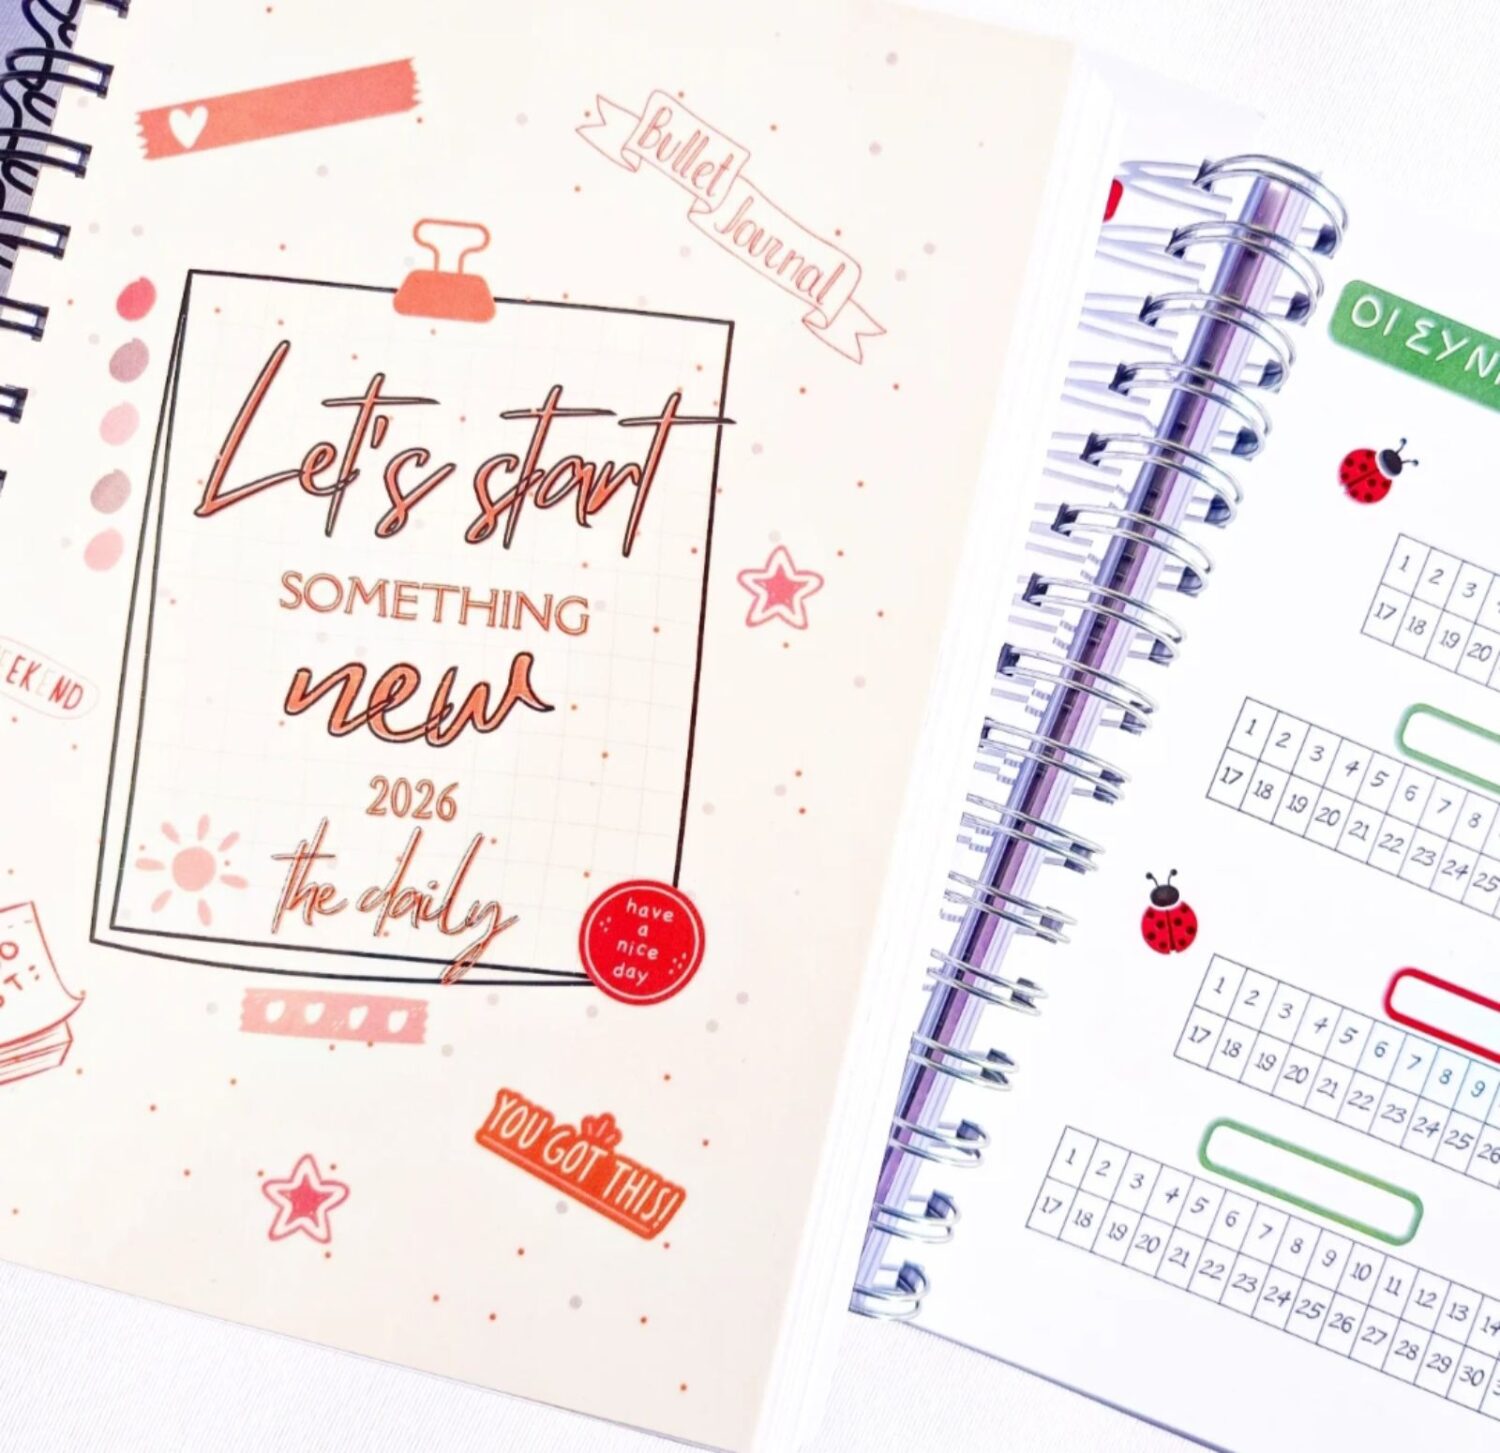 Bullet
Journal
Let's start
SOMETHING
new
2026
the daily
have
a
nice
day
YOU GOT THIS!
ΟΙ
1 2 3
17 18 19 20
1 2 3 4 5 6 7 8
17 18 19 20 21 22 23 24 25
1 2 3 4 5 6 7 8 9
17 18 19 20 21 22 23 24 25 26
1 2 3 4 5 6 7 8 9 10 11 12 13 14
17 18 19 20 21 22 23 24 25 26 27 28 29 30